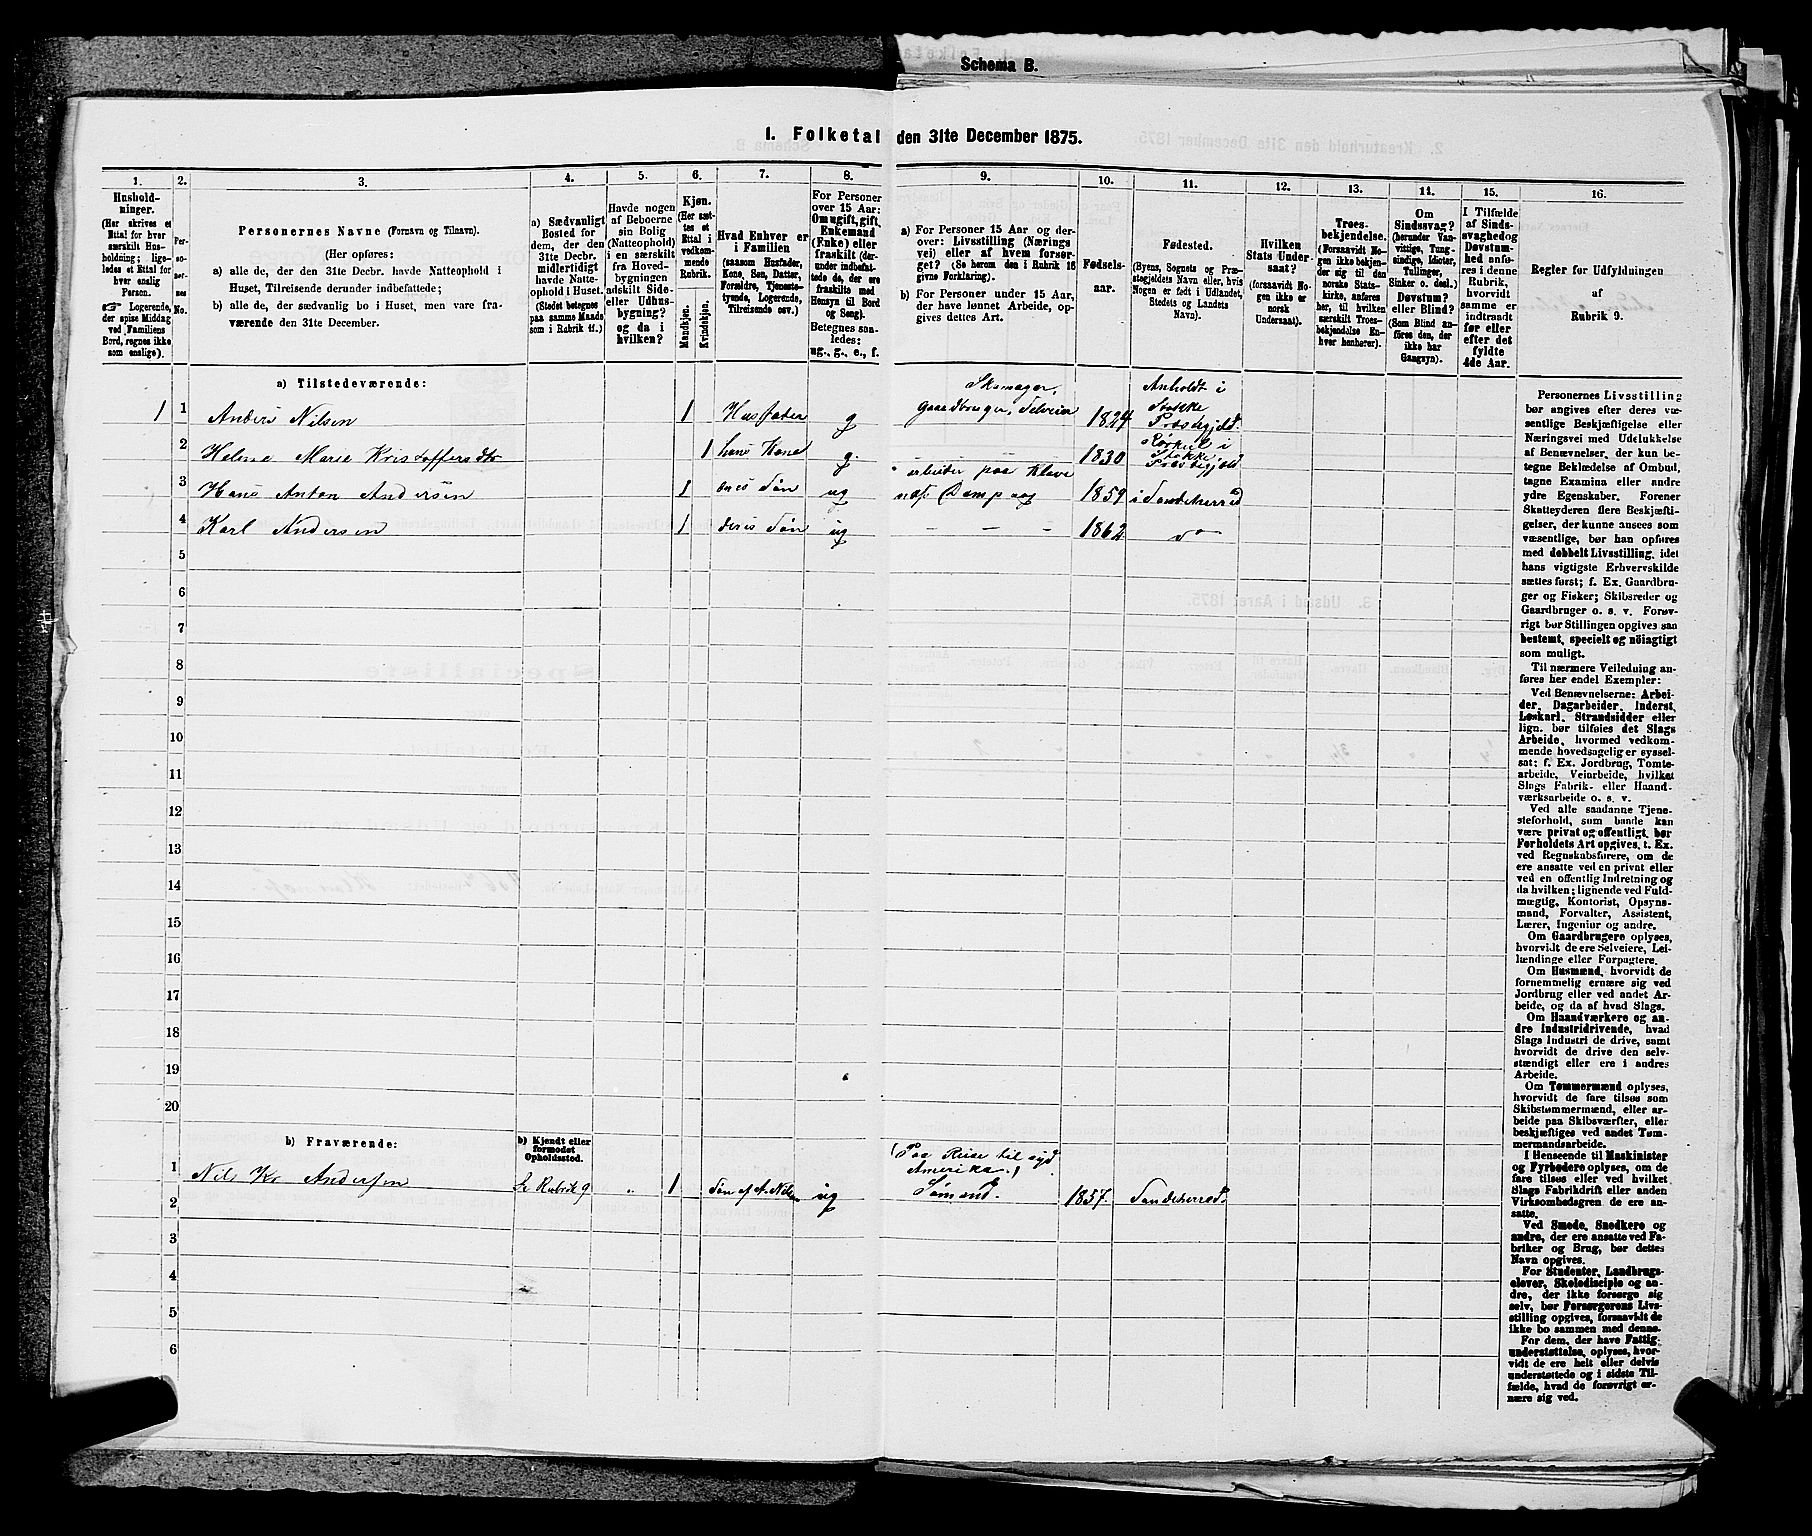 Schema B.
1. Folketal den 31te December 1875.
1. 2. 3. 4. 5. 6. 7. 8. 9. 10. 11. 12. 13. 14. 15. 16.
Husholdninger.
(Her skrives et Ettal for hver særskilt Husholdning; ligeledes et Ettal for hver enslig Person.
Logerende, der spise Middag ved Familiens Bord, regnes ikke som enslige).
Personernes No.
Personernes Navne (Fornavn og Tilnavn).
(Her opføres:
a) alle de, der den 31te Decbr. havde Natteophold i Huset, Tilreisende derunder indbefattede;
b) alle de, der sædvanlig bo i Huset, men vare fraværende den 31te December.
a) Sædvanligt Bosted for dem, der den 31te Decbr. midlertidigt havde Natteophold i Huset. (Stedet betegnes paa samme Maade som i Rubrik 11.)
Havde nogen af Beboerne sin Bolig (Natteophold) i en særskilt fra Hovedbygningen adskilt Side- eller Udhusbygning? og da i hvilken?
Kjøn.
(Her sættes et Ettal i vedkommende Rubrik.
Mandkjøn. Kvindekjøn.
Hvad Enhver er i Familien
(saasom Husfader, Kone, Søn, Datter, Forældre, Tjenestetyende, Logerende, Tilreisende osv.)
For Personer over 15 Aar: Om ugift, gift, Enkemand (Enke) eller fraskilt (derunder indbefattede de, der ere fraskilte med Hensyn til Bord og Seng).
Betegnes saaledes: ug., g., e., f.
a) For Personer 15 Aar og derover: Livsstilling (Næringsvei) eller af hvem forsørget? (Se herom den i Rubrik 16 givne Forklaring).
b) For Personer under 15 Aar, der have lønnet Arbeide, opgives dettes Art.
Fødselsaar.
Fødested.
(Byens, Sognets og Præstegjeldets Navn eller, hvis Nogen er født i Udlandet, Stedets og Landets Navn).
Hvilken Stats Undersaat?
(forsaavidt Nogen ikke er norsk Undersaat).
Troesbekjendelse.
(Forsaavidt Nogen ikke bekjender sig til den norske Statskirke, anføres her, til hvilken særskilt Troesbekjendelse Enhver henhører).
Om Sindssvag? (herunder Vanvittige, Tungsindige, Idioter, Tullinger, Sinker o. desl.) Døvstum? eller Blind? (Som Blind anføres den, der ikke har Gangsyn).
I Tilfælde af Sindssvaghed og Døvstumhed anføres i denne Rubrik, hvorvidt samme er indtraadt før eller efter det fyldte 4de Aar.
Regler for Udfyldningen af Rubrik 9.
a) Tilstedeværende:
1 1 Anders Nilsen 1 Husfader g Skomager, Gaardbruger, Selveier 1824 Anholdt i Stokke Præstegjeld.
2 Helene Marie Kristoffersdtr 1 hans Kone g. — — — 1830 i Stokke Præstegjeld
3 Hans Anton Andersen 1 deres Søn ug arbeider paa Klave næs Dampsag 1859 i Sandeherred
4 Karl Andersen 1 deres Søn ug — — — 1862 do
5
6
7
8
9
10
11
12
13
14
15
16
17
18
19
20
b) Fraværende:
b) Kjendt eller formodet Opholdssted.
1 Nils Kr Andersen Se Rubrik 9 „ 1 Søn af A. Nilsen ug (Paa Reise til syd Amerika.) Sømand. 1857. Sandeherred.
2
3
4
5
6
Personernes Livsstilling
bør angives efter deres væ-
sentlige Beskjæftigelse eller
Næringsvei med Udelukkelse
af Benævnelser, der kun be-
tegne Beklædelse af Ombud,
tagne Examina eller andre
ydre Egenskaber. Forener
Skatteyderen flere Beskjæfti-
gelser, der kunne ansees som
væsentlige, bør han opføres
med dobbelt Livsstilling, idet
hans vigtigste Erhvervskilde
sættes først; f. Ex. Gaardbru-
ger og Fisker; Skibsreder og
Gaardbruger o. s. v. Forøv-
rigt bør Stillingen opgives saa
bestemt, specielt og nöiagtigt
som muligt.
Til nærmere Veiledning an-
føres her endel Exempler:
Ved Benævnelserne: Arbei-
der, Dagarbeider, Inderst,
Løskarl, Strandsidder eller
lign. bør tilføies det Slags
Arbeide, hvormed vedkom-
mende hovedsagelig er syssel-
sat; f. Ex. Jordbrug, Tomte-
arbeide, Veiarbeide, hvilket
Slags Fabrik- eller Haand-
værksarbeide o. s. v.
Ved alle saadanne Tjene-
steforhold, som baade kan
være privat og offentligt, bør
Forholdets Art opgives, t. Ex.
ved Regnskabsførere, om de
ere ansatte ved en privat eller
ved en offentlig Indretning og
da hvilken; lignende ved Fuld-
mægtig, Kontorist, Opsyns-
mand, Forvalter, Assistent,
Lærer, Ingeniør og andre.
Om Gaardbrugere oplyses,
hvorvidt de ere Selveiere, Lei-
lændinge eller Forpagtere.
Om Husmænd, hvorvidt de
fornemmelig ernære sig ved
Jordbrug eller ved andet Ar-
beide, og da af hvad Slags.
Om Haandværkere og an-
dre Industridrivende, hvad
Slags Industri de drive, samt
hvorvidt de drive den selv-
stændigt eller ere i andres
Arbeide.
Om Tømmermænd oplyses,
hvorvidt de fare tilsøs som
Skibstømmermænd, eller ar-
beide paa Skibsværfter, eller
beskjæftiges ved andet Tøm-
mermandsarbeide.
I Henseende til Maskinister
og Fyrbødere oplyses, om de
fare tilsøs eller ved hvilket
Slags Fabrikdrift eller anden
Virksomhedsgren de ere an-
satte.
Ved Smede, Snedkere og
andre, der ere ansatte ved Fa-
briker og Brug, bør dettes
Navn opgives.
For Studenter, Landbrugs-
elever, Skoledisciple og an-
dre, der ikke forsørge sig
selv, bør Forsørgerens Livs-
stilling opgives, forsaavidt de
ikke bo sammen med denne.
For dem, der have Fattig-
understøttelse, oplyses, hvor-
vidt de ere helt eller delvis
understøttede og i sidste Til-
fælde, hvad de forøvrigt er-
nære sig ved.